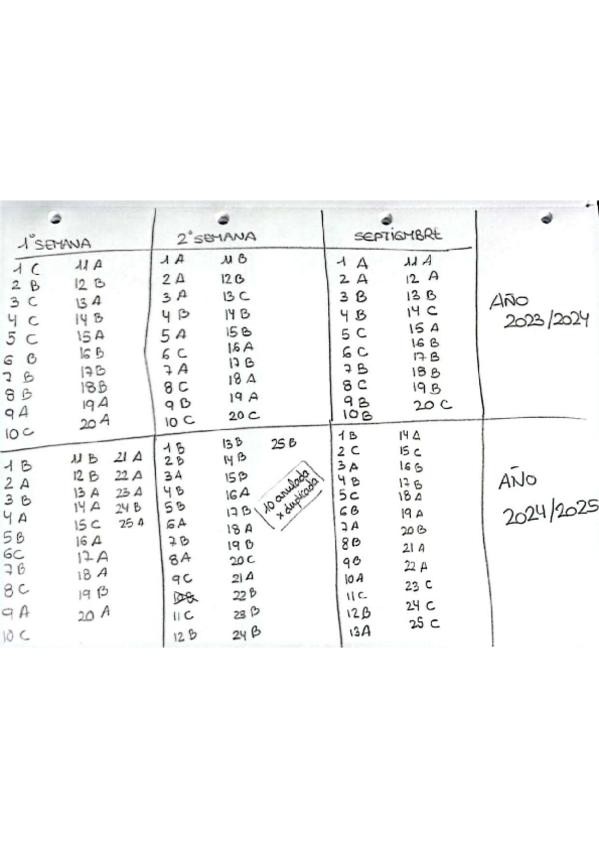 1ª SEMANA
1 C 11 A
2 B 12 B
3 C 13 A
4 C 14 B
5 C 15 A
6 B 16 B
7 B 17B
8 B 18B
9 A 19A
10 C 20 A
2ª SEMANA
1 A 11 B
2 A 12 B
3 A 13 C
4 B 14 B
5 A 15 B
6 C 16 A
7 A 17 B
8 C 18 A
9 B 19 A
10 C 20 C
SEPTIEMBRE
1 A 11 A
2 A 12 A
3 B 13 B
4 B 14 C
5 C 15 A
6 C 16 B
7 B 17 B
8 C 18 B
9 B 19 B
10 B 20 C
AÑO
2023/2024
1 B 11 B 21 A
2 A 12 B 22 A
3 B 13 A 23 A
4 A 14 A 24 B
5 B 15 C 25 A
6 C 16 A
7 B 17 A
8 C 18 A
9 A 19 B
10 C 20 A
1 B 13 B 25 B
2 B 14 B
3 A 15 B
4 B 16 A
5 B 17 B
6 A 18 A
7 B 19 B
8 A 20 C
9 C 21 A
22 B
11 C 23 B
12 B 24 B
10 anulada
x duplicada
1 B 14 A
2 C 15 C
3 A 16 B
4 B 17 B
5 C 18 A
6 B 19 A
7 A 20 B
8 B 21 A
9 B 22 A
10 A 23 C
11 C 24 C
12 B 25 C
13 A
AÑO
2024/2025